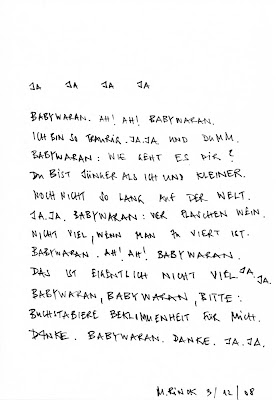 JA JA JA JA
BABYWARAN. AH! AH! BABYWARAN.
ICH BIN SO TRAURIG. JA.JA UND DUMM.
BABYWARAN: WIE GEHT ES DIR?
DU BIST JÜNGER ALS ICH UND KLEINER.
NOCH NICHT SO LANG AUF DER WELT.
JA.JA. BABYWARAN: VIER FLASCHEN WEIN.
NICHT VIEL, WENN MAN ZU VIERT IST.
BABYWARAN. AH! AH! BABYWARAN.
DAS IST EIGENTLICH NICHT VIEL. JA. JA.
BABYWARAN, BABYWARAN, BITTE:
BUCHSTABIERE BEKLOMMENHEIT FÜR MICH.
DANKE. BABYWARAN. DANKE. JA. JA.
M. RINCK 3/12/08